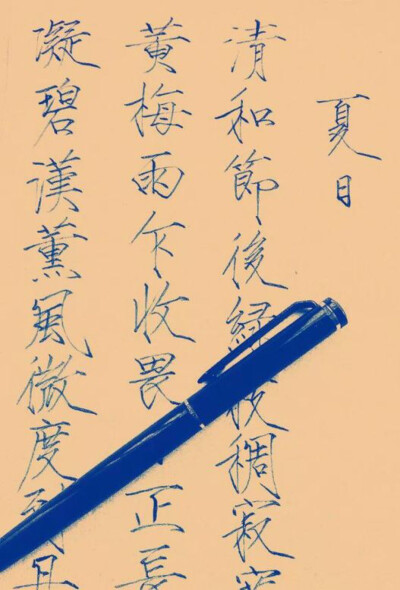 夏日
清和節後緑枝稠寂寞
黄梅雨乍收畏正長
凝碧漢薰風微度到丹